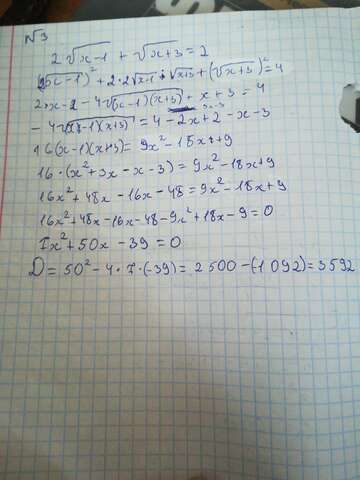 №3
2√x-1 + √x+3 = 2
(2√x-1)² + 2·2√x-1 · √x+3 + (√x+3)² = 4
2x-2 - 4√(x-1)(x+3) + x+3 = 4
-4√(x-1)(x+3) = 4-2x+2-x-3
16(x-1)(x+3) = 9x²-18x+9
16·(x²+3x-x-3) = 9x²-18x+9
16x²+48x-16x-48 = 9x²-18x+9
16x²+48x-16x-48-9x²+18x-9=0
7x²+50x-39=0
D=50²-4·7·(-39)=2500-(-1092)=3592